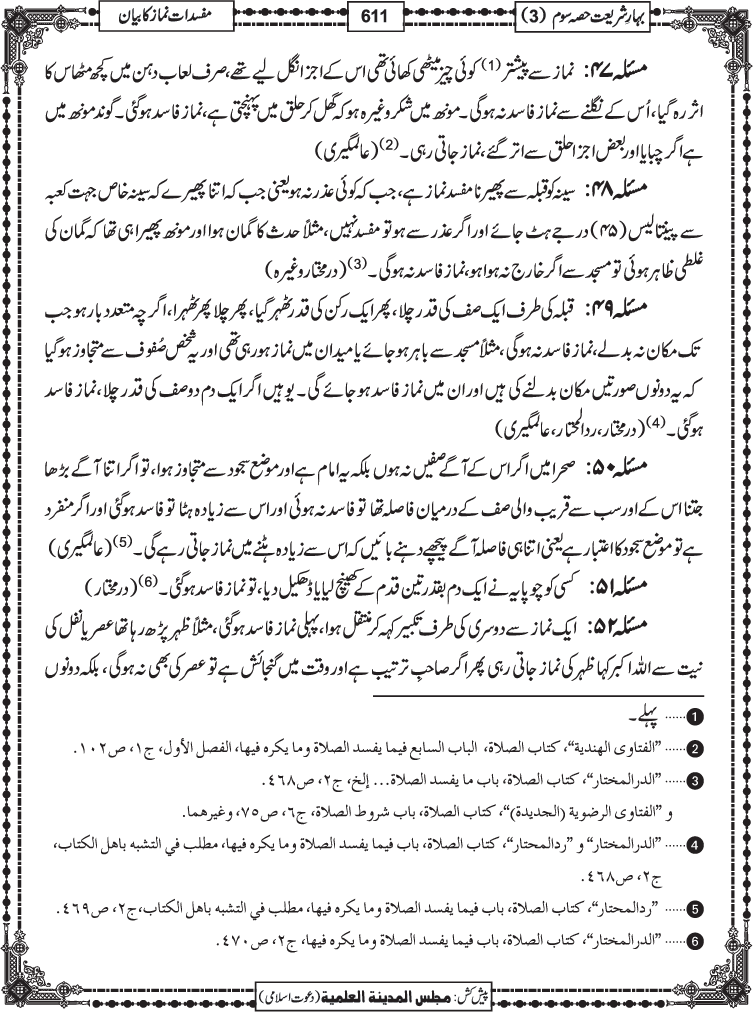 بہارِ شریعت حصہ سوم (3)
611
مفسدات نماز کا بیان
مسئلہ ۴۷: نماز سے پیشتر (1) کوئی چیز میٹھی کھائی تھی اس کے اجزا نگل لیے تھے، صرف لعاب دہن میں کچھ مٹھاس کا
اثر رہ گیا، اُس کے نگلنے سے نماز فاسد نہ ہوگی۔ مونھ میں شکر وغیرہ ہو کہ گھل کر حلق میں پہنچتی ہے، نماز فاسد ہوگئی۔ گوند مونھ میں
ہے اگر چبایا اور بعض اجزا حلق سے اتر گئے، نماز جاتی رہی۔ (2) (عالمگیری)
مسئلہ ۴۸: سینہ کو قبلہ سے پھیرنا مفسد نماز ہے، جب کہ کوئی عذر نہ ہو یعنی جب کہ اتنا پھیرے کہ سینہ خاص جہت کعبہ
سے پینتالیس (۴۵) درجے ہٹ جائے اور اگر عذر سے ہو تو مفسد نہیں، مثلاً حدث کا گمان ہوا اور مونھ پھیرا ہی تھا کہ گمان کی
غلطی ظاہر ہوئی تو مسجد سے اگر خارج نہ ہوا ہو، نماز فاسد نہ ہوگی۔ (3) (درمختار وغیرہ)
مسئلہ ۴۹: قبلہ کی طرف ایک صف کی قدر چلا، پھر ایک رکن کی قدر ٹھہر گیا، پھر چلا پھر ٹھہرا، اگرچہ متعدد بار ہو جب
تک مکان نہ بدلے، نماز فاسد نہ ہوگی، مثلاً مسجد سے باہر ہو جائے یا میدان میں نماز ہو رہی تھی اور یہ شخص صُفوف سے متجاوز ہو گیا
کہ یہ دونوں صورتیں مکان بدلنے کی ہیں اور ان میں نماز فاسد ہو جائے گی۔ یوہیں اگر ایک دم دو صف کی قدر چلا، نماز فاسد
ہوگئی۔ (4) (درمختار، ردالمحتار، عالمگیری)
مسئلہ ۵۰: صحرا میں اگر اس کے آگے صفیں نہ ہوں بلکہ یہ امام ہے اور موضع سجود سے متجاوز ہوا، تو اگر اتنا آگے بڑھا
جتنا اس کے اور سب سے قریب والی صف کے درمیان فاصلہ تھا تو فاسد نہ ہوئی اور اس سے زیادہ ہٹا تو فاسد ہوگئی اور اگر منفرد
ہے تو موضع سجود کا اعتبار ہے یعنی اتنا ہی فاصلہ آگے پیچھے دہنے بائیں کہ اس سے زیادہ ہٹنے میں نماز جاتی رہے گی۔ (5) (عالمگیری)
مسئلہ ۵۱: کسی کو چوپایہ نے ایک دم بقدر تین قدم کے کھینچ لیا یا ڈھکیل دیا، تو نماز فاسد ہوگئی۔ (6) (درمختار)
مسئلہ ۵۲: ایک نماز سے دوسری کی طرف تکبیر کہہ کر منتقل ہوا، پہلی نماز فاسد ہوگئی، مثلاً ظہر پڑھ رہا تھا عصر یا نفل کی
نیت سے اللہ اکبر کہا ظہر کی نماز جاتی رہی پھر اگر صاحبِ ترتیب ہے اور وقت میں گنجائش ہے تو عصر کی بھی نہ ہوگی، بلکہ دونوں
1 ...... پہلے۔
2 ...... ”الفتاوی الهندیة“، کتاب الصلاة، الباب السابع فیما یفسد الصلاة وما یکره فیها، الفصل الأول، ج١، ص١٠٢.
3 ...... ”الدرالمختار“، کتاب الصلاة، باب ما یفسد الصلاة... إلخ، ج٢، ص٤٦٨.
و ”الفتاوی الرضویة (الجدیدة)“، کتاب الصلاة، باب شروط الصلاة، ج٦، ص٧٥، وغیرهما.
4 ...... ”الدرالمختار“ و ”ردالمحتار“، کتاب الصلاة، باب فیما یفسد الصلاة وما یکره فیها، مطلب في التشبه باهل الکتاب،
ج٢، ص٤٦٨.
5 ...... ”ردالمحتار“، کتاب الصلاة، باب فیما یفسد الصلاة وما یکره فیها، مطلب في التشبه باهل الکتاب، ج٢، ص٤٦٩.
6 ...... ”الدرالمختار“، کتاب الصلاة، باب فیما یفسد الصلاة وما یکره فیها، ج٢، ص٤٧٠.
پیش کش: مجلس المدینة العلمیة (دعوت اسلامی)